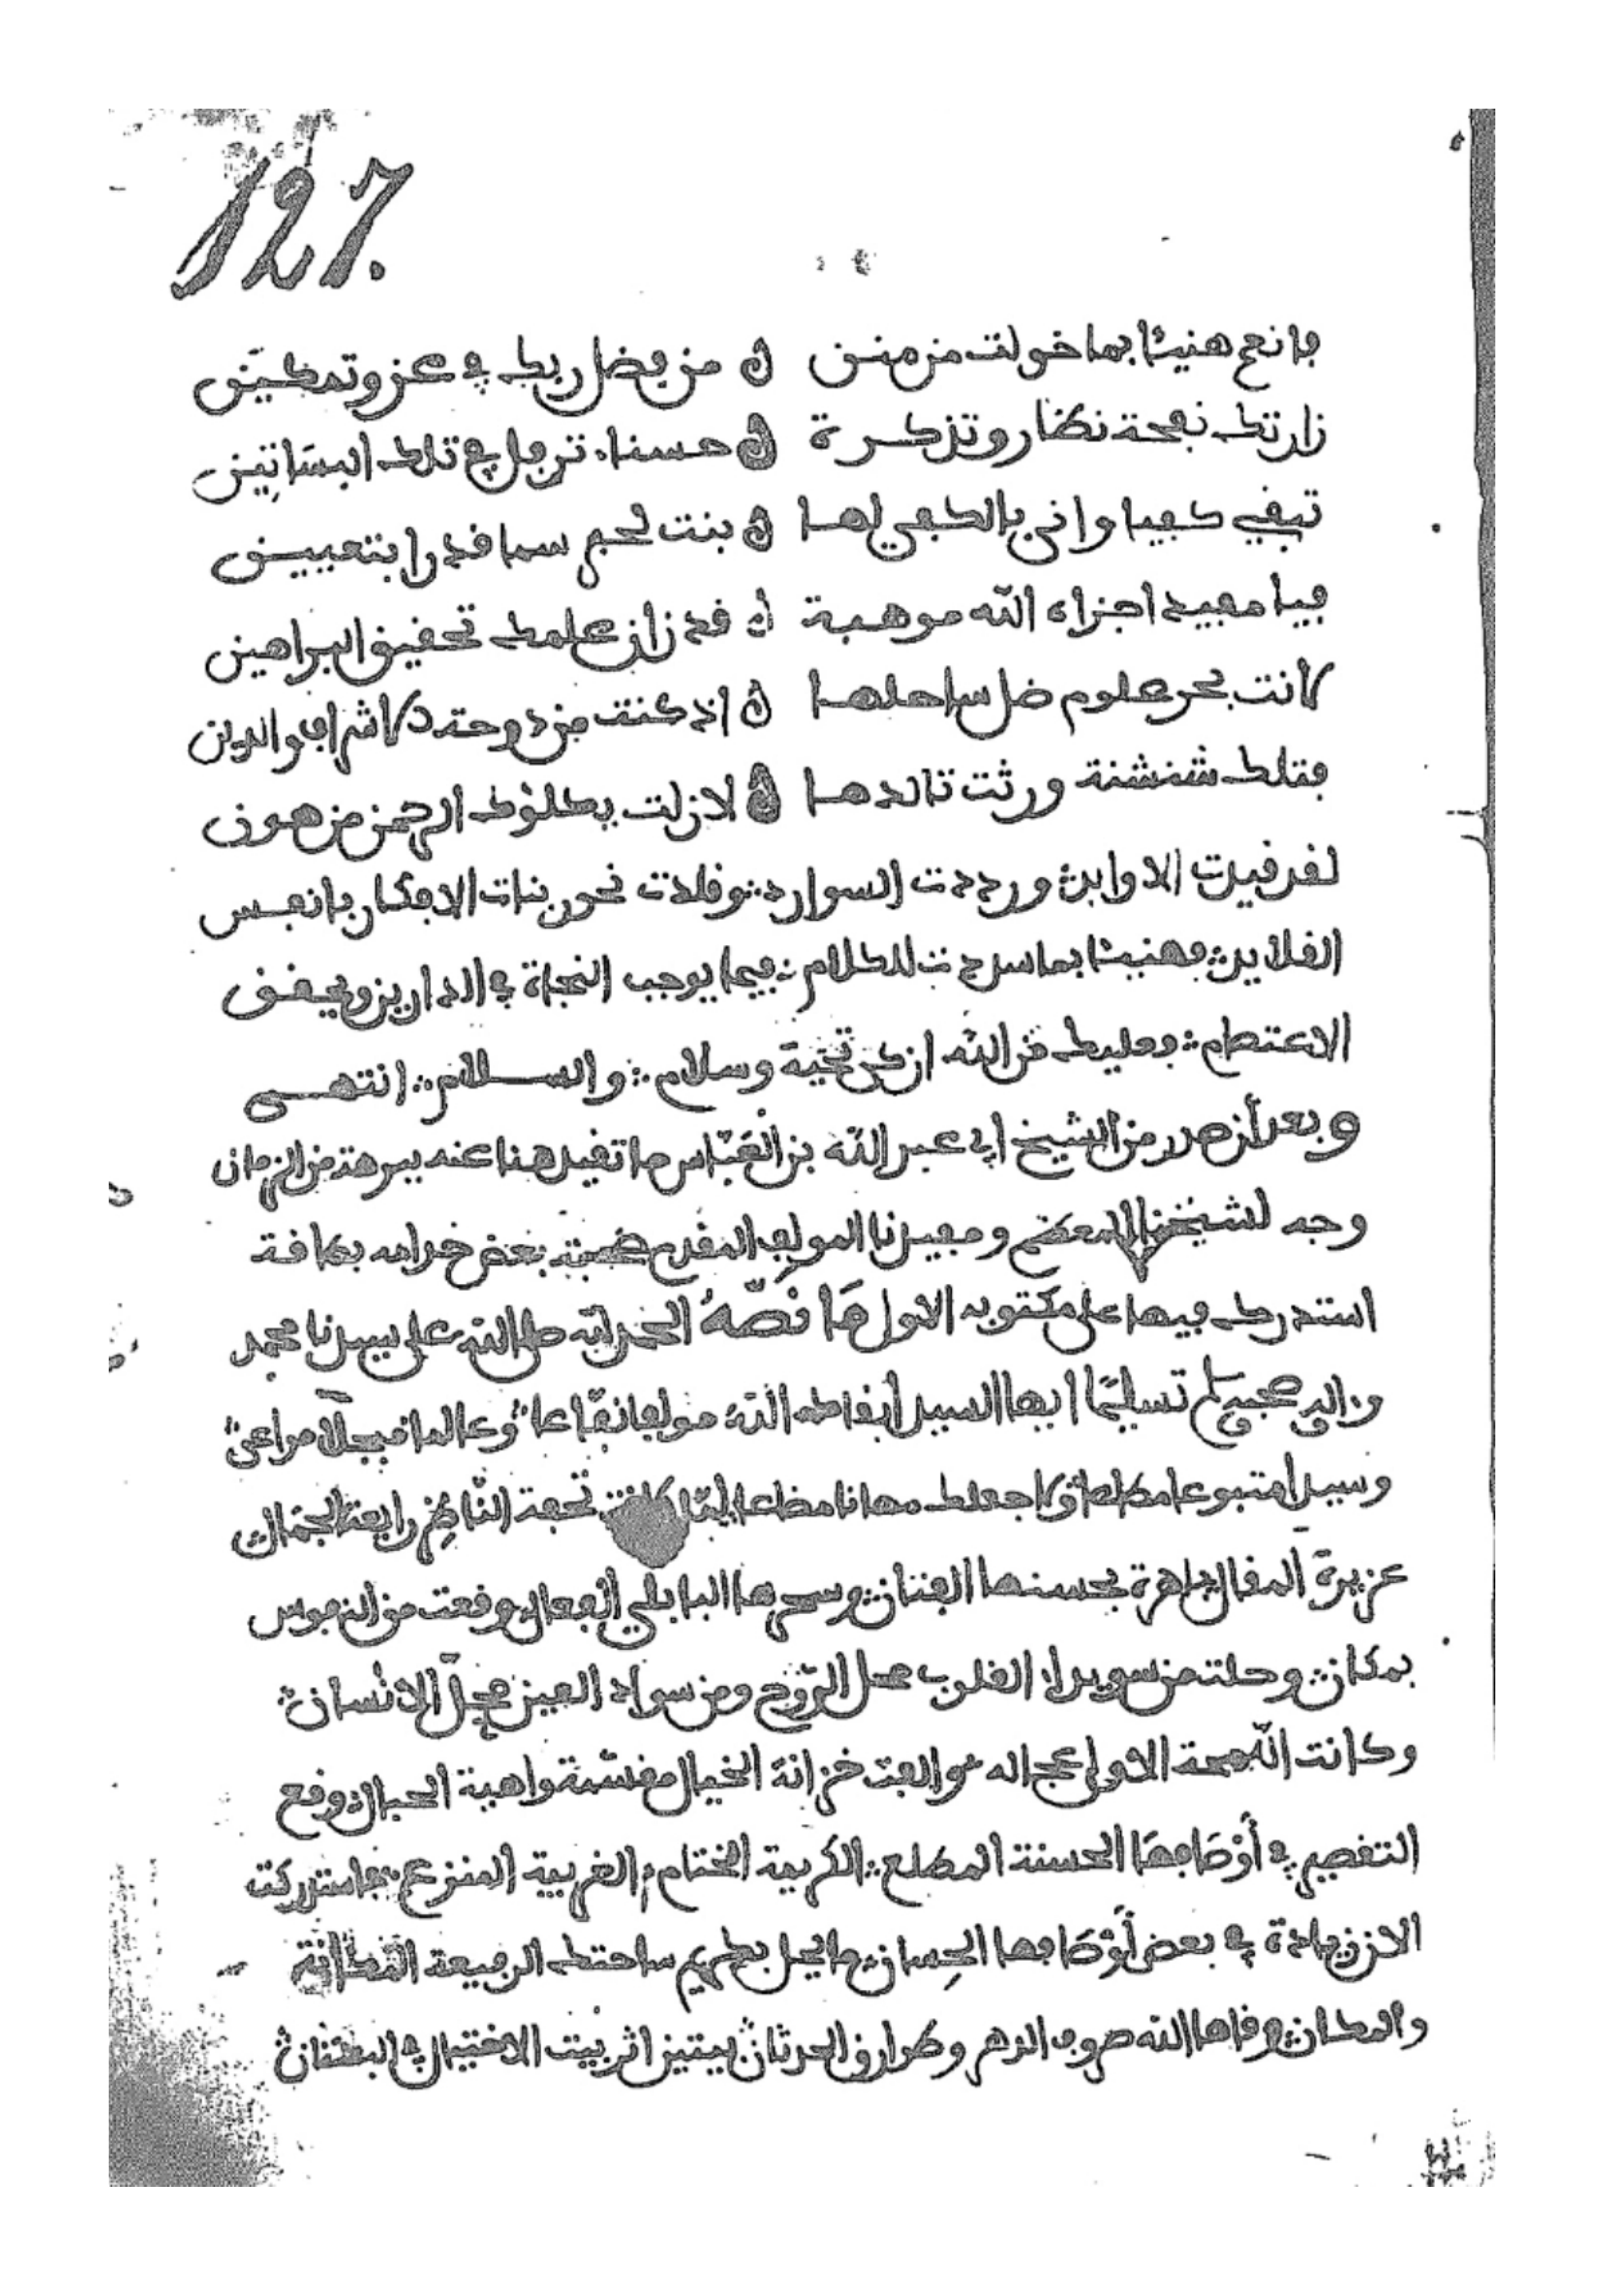 127.
فانعم هنيئا بما خولت من منن ن من فضل ربك في عز وتمكين
زارتك نفحة نظار وتذكرة ن حسناء ترفل في تلك البساتين
تبغي كفيا واني بالكفي لها ن بنت لحم سما قدرا بتعيين
فيا مفيد اجزاه الله موهبة ن قد زان علمك تحقيق البراهين
كانت بحر علوم ضل ساحلها ن اذ كنت من دوحة كاشراف والدين
فتلك شنشنة ورثت تالدها ن لازلت يكلؤك الرحمن من هون
لقد قيدت الاوابد ورددت الشوارد وقلدت نحور بنات الافكار بانفس
القلايد وهنيئا بما سرحت للكلام فيما يوجب النجاة في الدارين ويحقق
الاعتصام وعليك من الله ازكى تحية وسلام والسلام انتهى
وبعد أن صدر من الشيخ ابي عبد الله بن العباس ما تقيد هنا عنه ببرهة من الزمان
وجه لشيخنا المعظم ومفيدنا المولى المقدم صحبة بعض خدامه بطاقة
استدرك فيها على مكتوبه الاول مَا نصّهُ الحمد لله صلى الله على سيدنا محمد
واله وصحبه وسلم تسليما ايها السيد أبقاك الله مولى نفّاعا وعالما مبجلا مراعى
وسيدا متبوعا مطاعا ولا جعلك مهانا مضاعا لمّا كانت تحفة النّاظر رايعة الجمال
عزيزة المقال باهرة بحسنها الفتان وسحرها البابلي الفعال وقعت من النفوس
بمكان وحلت من سويداء القلوب محل الرّوح ومن سواد العين محلّ الانسان
وكانت اللمحة الاولى عجاله والفت خزانة الخيال مفشية واهية الحبال وقع
التقصير في أوْصَافهَا الحسنة المطلع الكريمة الختام الغريبة المنزع فاستدركت
الان زيادة في بعض أوْصَافها الحِسان ما يحل بكريم ساحتك الرفيعة المكانة
والمكان وقاها الله صروف الدهر وطوارق الحدثان بيتين اثر بيت الاختيال في البستان